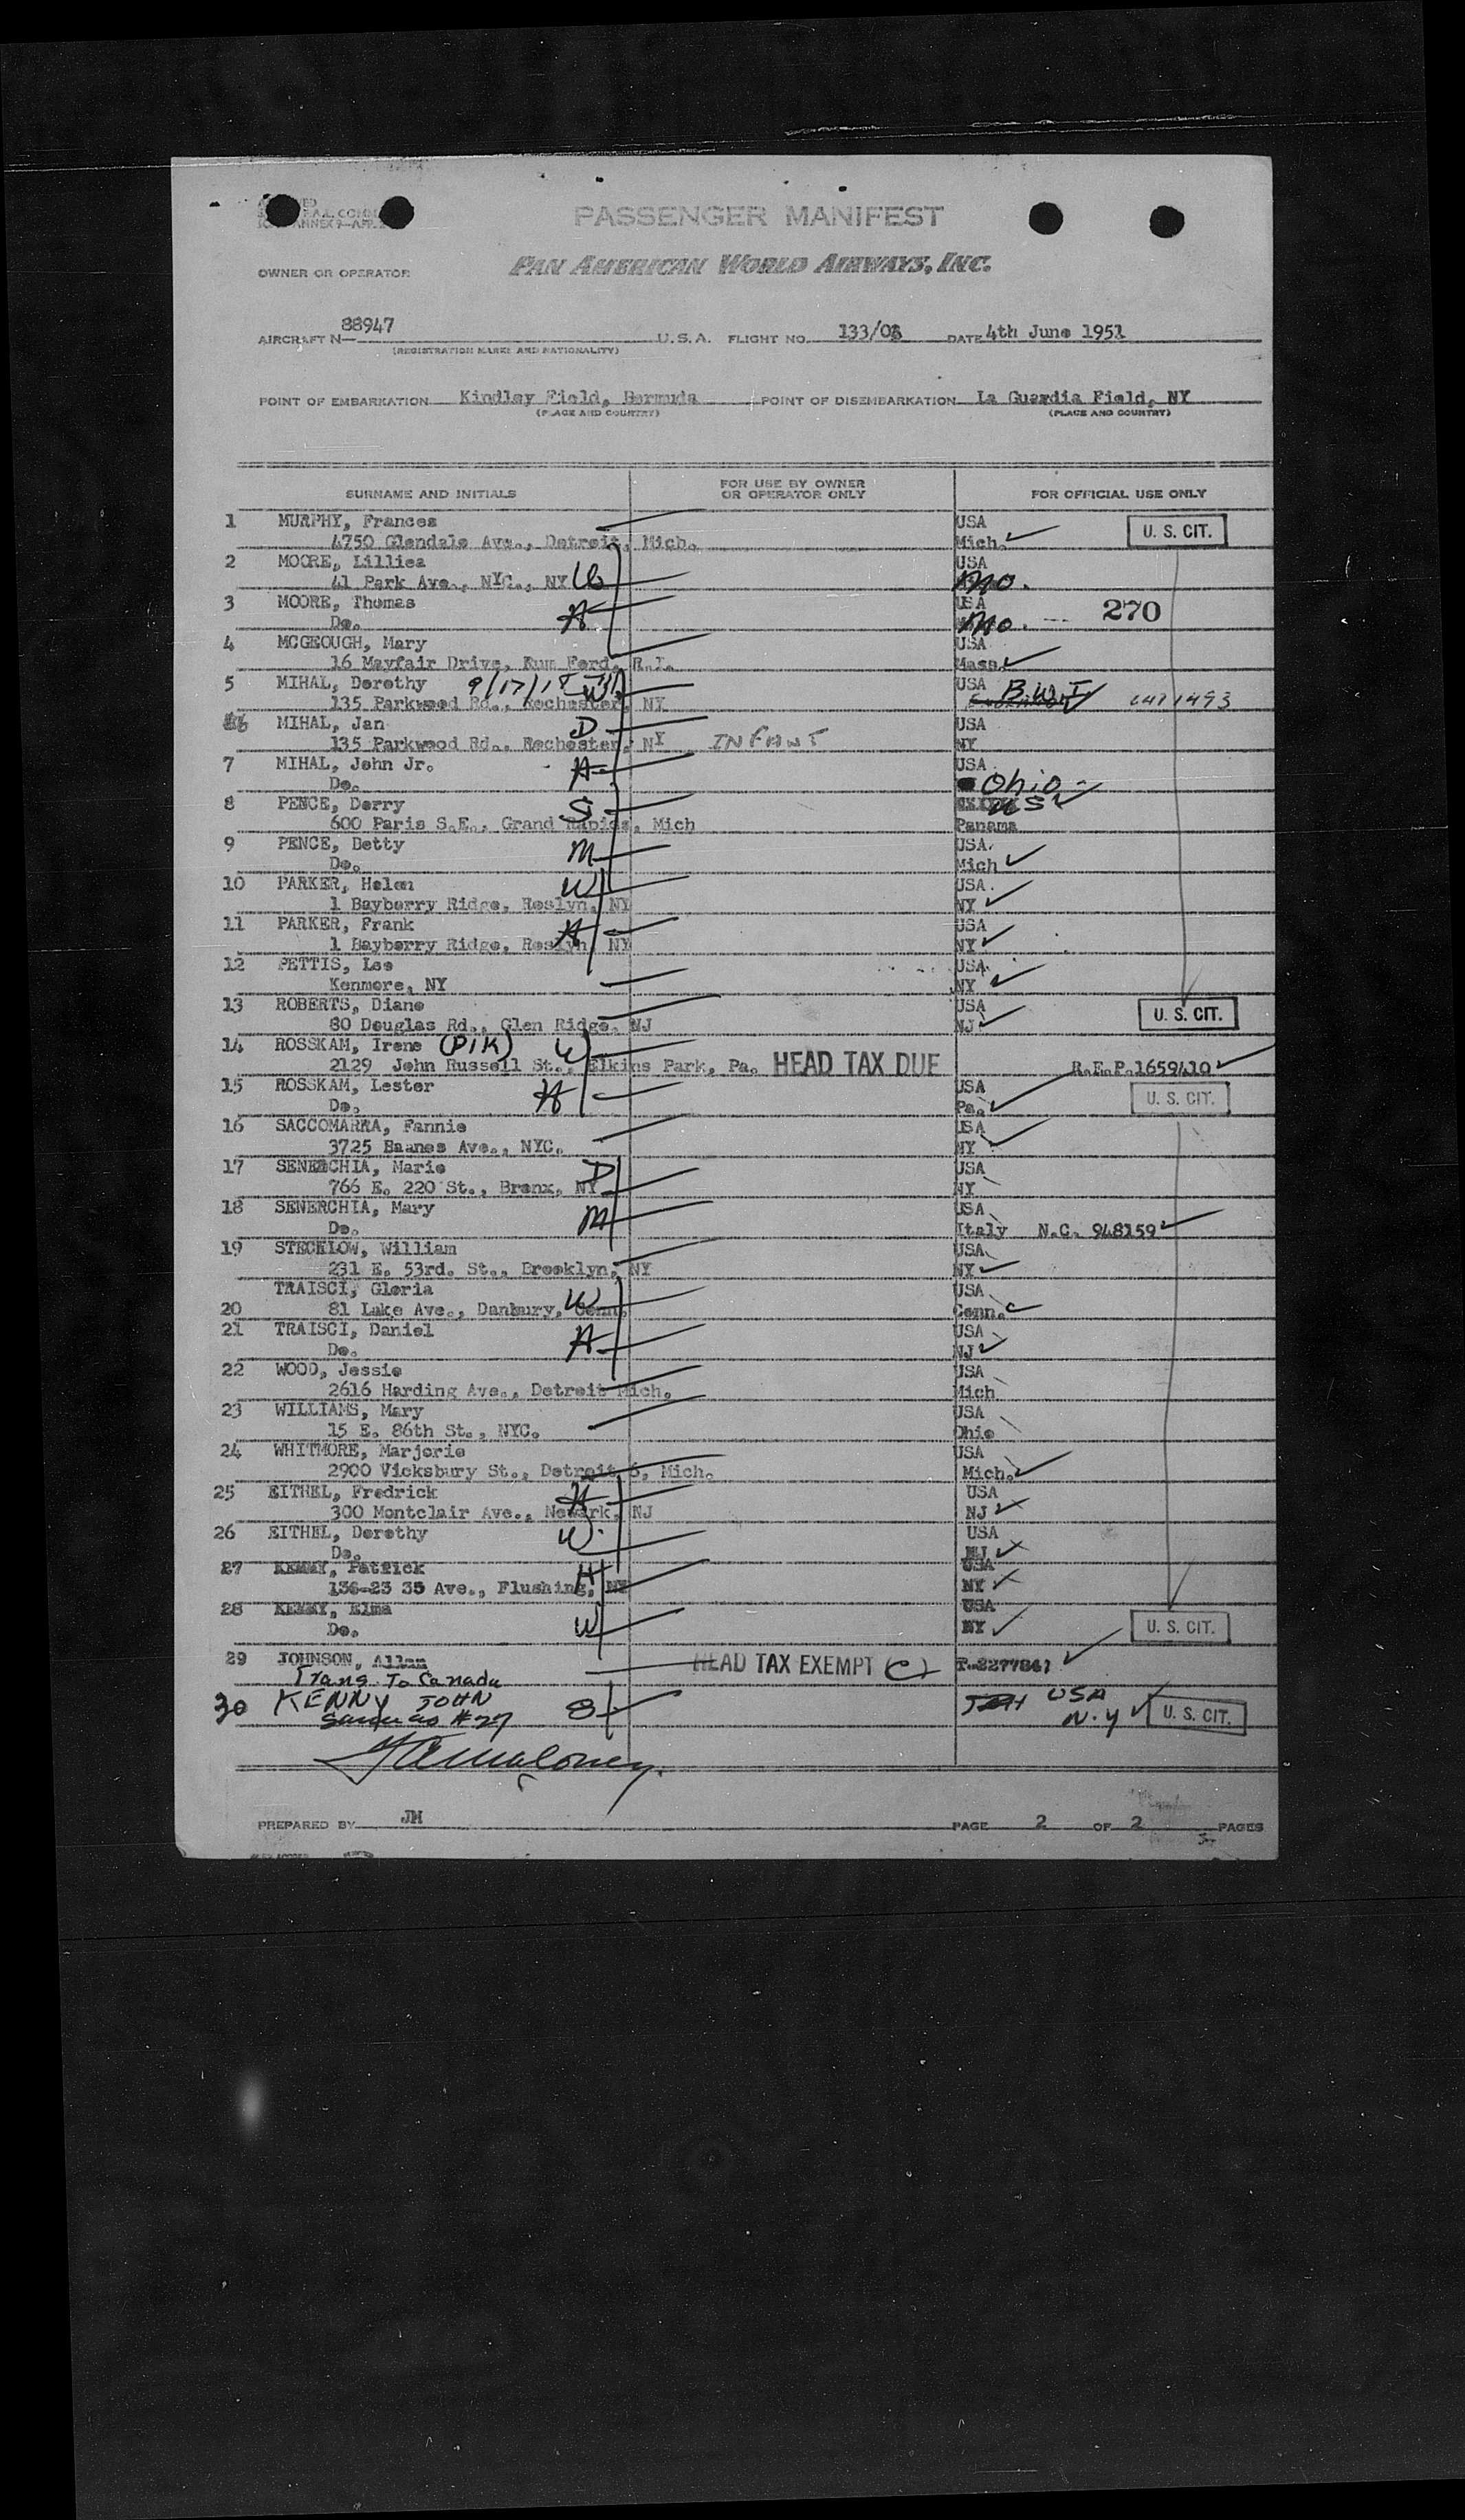 PASSENGER MANIFEST
PAN AMERICAN WORLD AIRWAYS, INC.
OWNER OR OPERATOR
AIRCRAFT N— 88947 U.S.A. FLIGHT NO. 133/03 DATE 4th June 1951
(REGISTRATION MARKS AND NATIONALITY)
POINT OF EMBARKATION Kindley Field, Bermuda POINT OF DISEMBARKATION La Guardia Field, NY
(PLACE AND COUNTRY) (PLACE AND COUNTRY)
SURNAME AND INITIALS FOR USE BY OWNER OR OPERATOR ONLY FOR OFFICIAL USE ONLY
1 MURPHY, Frances USA U. S. CIT.
4750 Glendale Ave., Detroit, Mich. Mich.
2 MOORE, Lillies USA
41 Park Ave., NYC., NY Mo.
3 MOORE, Thomas USA 270
Do. H Mo.
4 MCGEOUGH, Mary USA
16 Mayfair Drive, Rum Ford, R.I. Mass.
5 MIHAL, Dorothy 9/17/18 W USA B.W.I
135 Parkwood Rd., Rochester, NY
6 MIHAL, Jan D USA
135 Parkwood Rd., Rochester, NY INFANT NY
7 MIHAL, John Jr. H USA
Do. Ohio
8 PENCE, Derry S US
600 Paris S.E., Grand Rapids, Mich Panama
9 PENCE, Betty M USA
Do. Mich
10 PARKER, Helen W USA
1 Bayberry Ridge, Roslyn, NY NY
11 PARKER, Frank H USA
1 Bayberry Ridge, Roslyn, NY NY
12 PETTIS, Lee USA
Kenmore, NY NY
13 ROBERTS, Diane USA U. S. CIT.
80 Douglas Rd., Glen Ridge, NJ NJ
14 ROSSKAM, Irene (PIK) W
2129 John Russell St., Elkins Park, Pa. HEAD TAX DUE R.E.P.1659410
15 ROSSKAM, Lester H USA U. S. CIT.
Do. Pa.
16 SACCOMARRA, Fannie USA
3725 Baanes Ave., NYC. NY
17 SENERCHIA, Marie D USA
766 E. 220 St., Bronx, NY NY
18 SENERCHIA, Mary M USA
Do. Italy N.C. 948159
19 STECKLOW, William USA
231 E. 53rd. St., Brooklyn, NY NY
TRAISCI, Gloria W USA
20 81 Lake Ave., Danbury, Conn. Conn.
21 TRAISCI, Daniel H USA
Do. NJ
22 WOOD, Jessie USA
2616 Harding Ave., Detroit Mich. Mich
23 WILLIAMS, Mary USA
15 E. 86th St., NYC. Ohio
24 WHITMORE, Marjorie USA
2900 Vicksbury St., Detroit 6, Mich. Mich.
25 EITHEL, Fredrick H USA
300 Montclair Ave., Newark, NJ NJ
26 EITHEL, Dorothy W USA
Do. NJ
27 KENNY, Patrick H USA
136-23 35 Ave., Flushing, NY NY
28 KENNY, Elma W USA
Do. NY U. S. CIT.
29 JOHNSON, Allan HEAD TAX EXEMPT (C)
Trans To Canada
30 KENNY JOHN S USA
Same as #27 N.Y U. S. CIT.
PREPARED BY JM PAGE 2 OF 2 PAGES